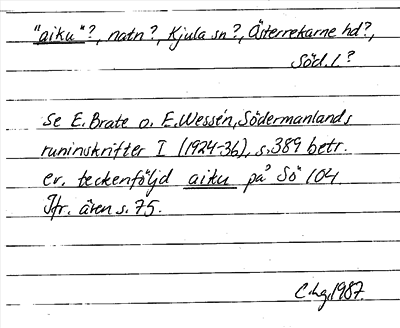 "aiku"?, natn?, Kjula sn?, Österrekarne hd?,
Söd.l.?
Se E. Brate o. E. Wessén, Södermanlands
runinskrifter I (1924-36), s. 389 betr.
ev. teckenföljd aiku på Sö 104.
Jfr. även s. 75.
C.hg. 1987.